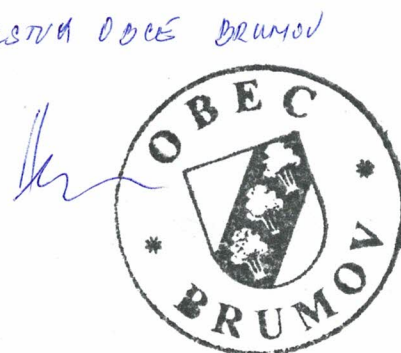 OBCE BRUMOV
OBEC
BRUMOV